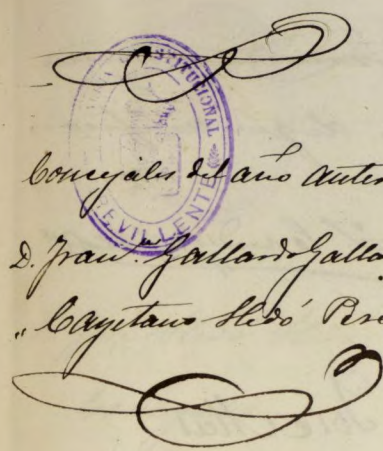 STITUCIONAL
REVILLENTE
Concejales del año anter
D. Fran.co Gallardo Galla
„ Cayetano Lledó Pere